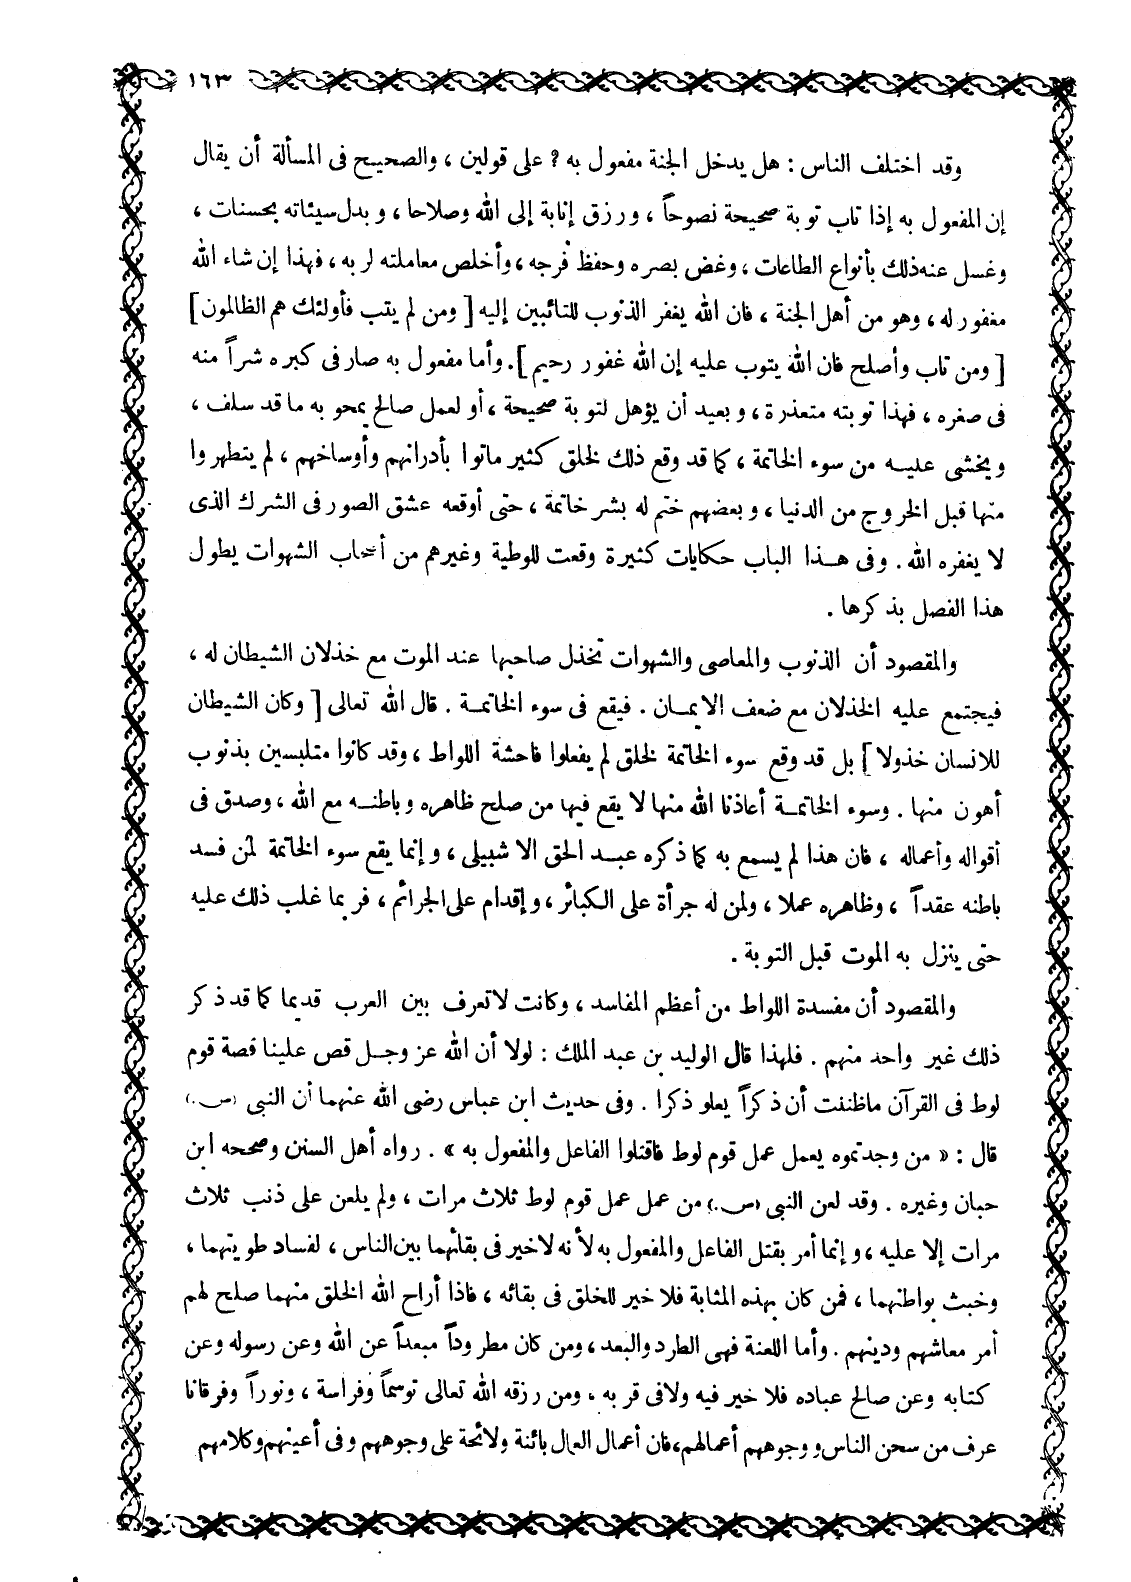 ١٦٣
وقد اختلف الناس : هل يدخل الجنة مفعول به ? على قولين ، والصحيح فى المسألة أن يقال
إن المفعول به إذا تاب توبة صحيحة نصوحاً ، ورزق إنابة إلى الله وصلاحا ، وبدل سيئاته بحسنات ،
وغسل عنه ذلك بأنواع الطاعات ، وغض بصره وحفظ فرجه ، وأخلص معاملته لربه ، فهذا إن شاء الله
مغفور له ، وهو من أهل الجنة ، فان الله يغفر الذنوب للتائبين إليه [ ومن لم يتب فأولئك هم الظالمون ]
[ ومن تاب وأصلح فان الله يتوب عليه إن الله غفور رحيم ] . وأما مفعول به صار فى كبره شراً منه
فى صغره ، فهذا توبته متعذرة ، وبعيد أن يؤهل لتوبة صحيحة ، أو لعمل صالح يمحو به ما قد سلف ،
ويخشى عليه من سوء الخاتمة ، كما قد وقع ذلك لخلق كثير ماتوا بأدرانهم وأوساخهم ، لم يتطهروا
منها قبل الخروج من الدنيا ، وبعضهم ختم له بشر خاتمة ، حتى أوقعه عشق الصور فى الشرك الذى
لا يغفره الله . وفى هذا الباب حكايات كثيرة وقعت للوطية وغيرهم من أصحاب الشهوات يطول
هذا الفصل بذكرها .
والمقصود أن الذنوب والمعاصى والشهوات تخذل صاحبها عند الموت مع خذلان الشيطان له ،
فيجتمع عليه الخذلان مع ضعف الايمان . فيقع فى سوء الخاتمة . قال الله تعالى [ وكان الشيطان
للانسان خذولا ] بل قد وقع سوء الخاتمة لخلق لم يفعلوا فاحشة اللواط ، وقد كانوا متلبسين بذنوب
أهون منها . وسوء الخاتمة أعاذنا الله منها لا يقع فيها من صلح ظاهره وباطنه مع الله ، وصدق فى
أقواله وأعماله ، فان هذا لم يسمع به كما ذكره عبد الحق الاشبيلى ، وإنما يقع سوء الخاتمة لمن فسد
باطنه عقداً ، وظاهره عملا ، ولمن له جرأة على الكبائر ، وإقدام على الجرائم ، فربما غلب ذلك عليه
حتى ينزل به الموت قبل التوبة .
والمقصود أن مفسدة اللواط من أعظم المفاسد ، وكانت لا تعرف بين العرب قديما كما قد ذكر
ذلك غير واحد منهم . فلهذا قال الوليد بن عبد الملك : لولا أن الله عز وجل قص علينا قصة قوم
لوط فى القرآن ماظننت أن ذكراً يعلو ذكرا . وفى حديث ابن عباس رضى الله عنهما أن النبى (ص.)
قال : « من وجدتموه يعمل عمل قوم لوط فاقتلوا الفاعل والمفعول به » . رواه أهل السنن وصححه ابن
حبان وغيره . وقد لعن النبى (ص.) من عمل عمل قوم لوط ثلاث مرات ، ولم يلعن على ذنب ثلاث
مرات إلا عليه ، وإنما أمر بقتل الفاعل والمفعول به لأنه لا خير فى بقائهما بين الناس ، لفساد طويتهما ،
وخبث بواطنهما ، فمن كان بهذه المثابة فلا خير للخلق فى بقائه ، فاذا أراح الله الخلق منهما صلح لهم
أمر معاشهم ودينهم . وأما اللعنة فهى الطرد والبعد ، ومن كان مطروداً مبعداً عن الله وعن رسوله وعن
كتابه وعن صالح عباده فلا خير فيه ولا فى قربه ، ومن رزقه الله تعالى توسماً وفراسة ، ونوراً وفرقانا
عرف من سحن الناس ووجوههم أعمالهم ، فان أعمال العمال بائنة ولائحة على وجوههم وفى أعينهم وكلامهم